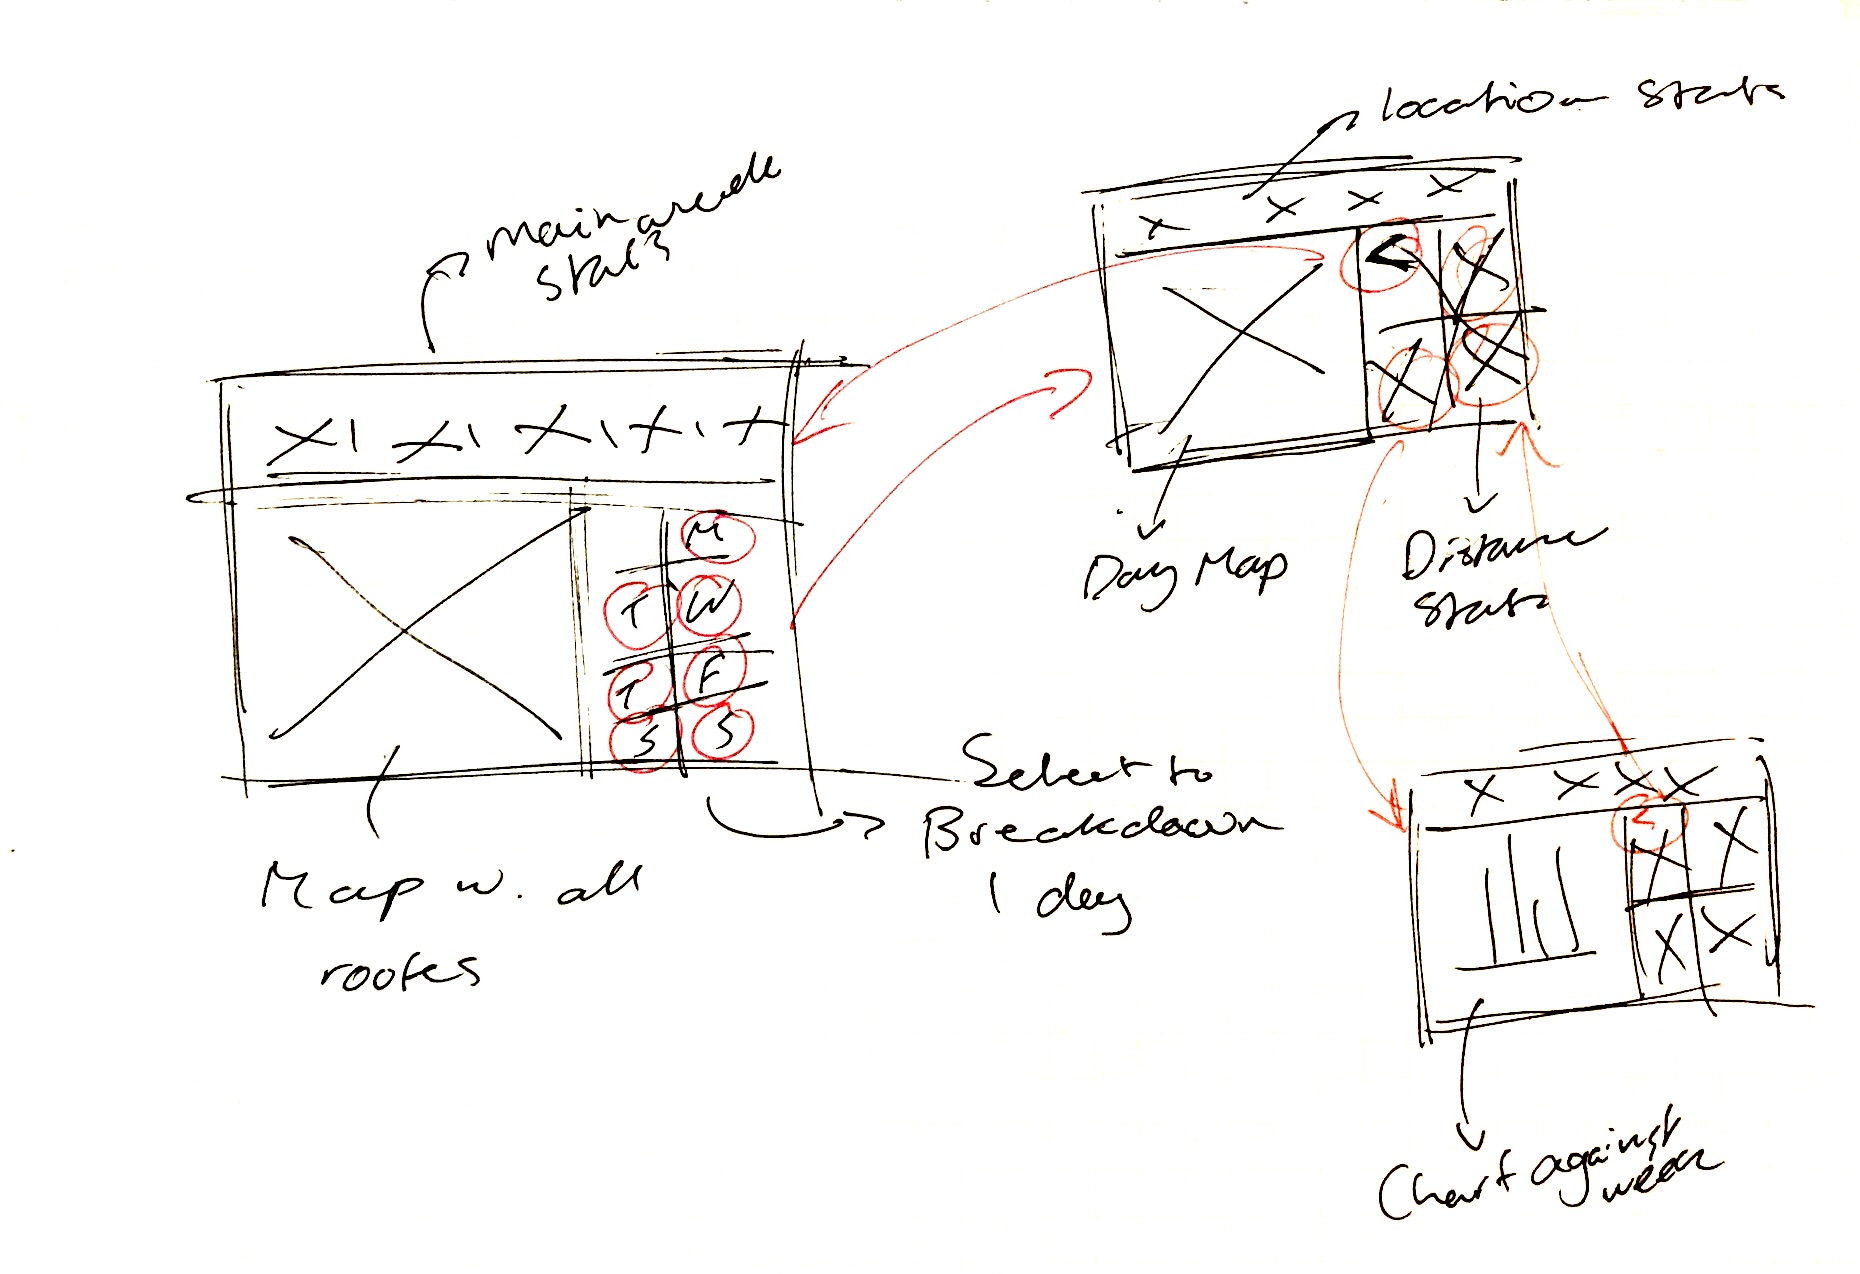 location stats
main
stats
M
T W
T F
S S
Day Map
Distance
stats
Select to
Breakdown
1 day
Map w. all
rootes
Chart against
week